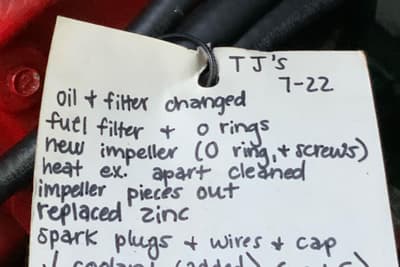 TJ's
7-22
Oil + filter changed
fuel filter + o rings
new impeller (O ring, + screws)
heat ex. apart cleaned
impeller pieces out
replaced zinc
spark plugs + wires + cap
coolant (added)